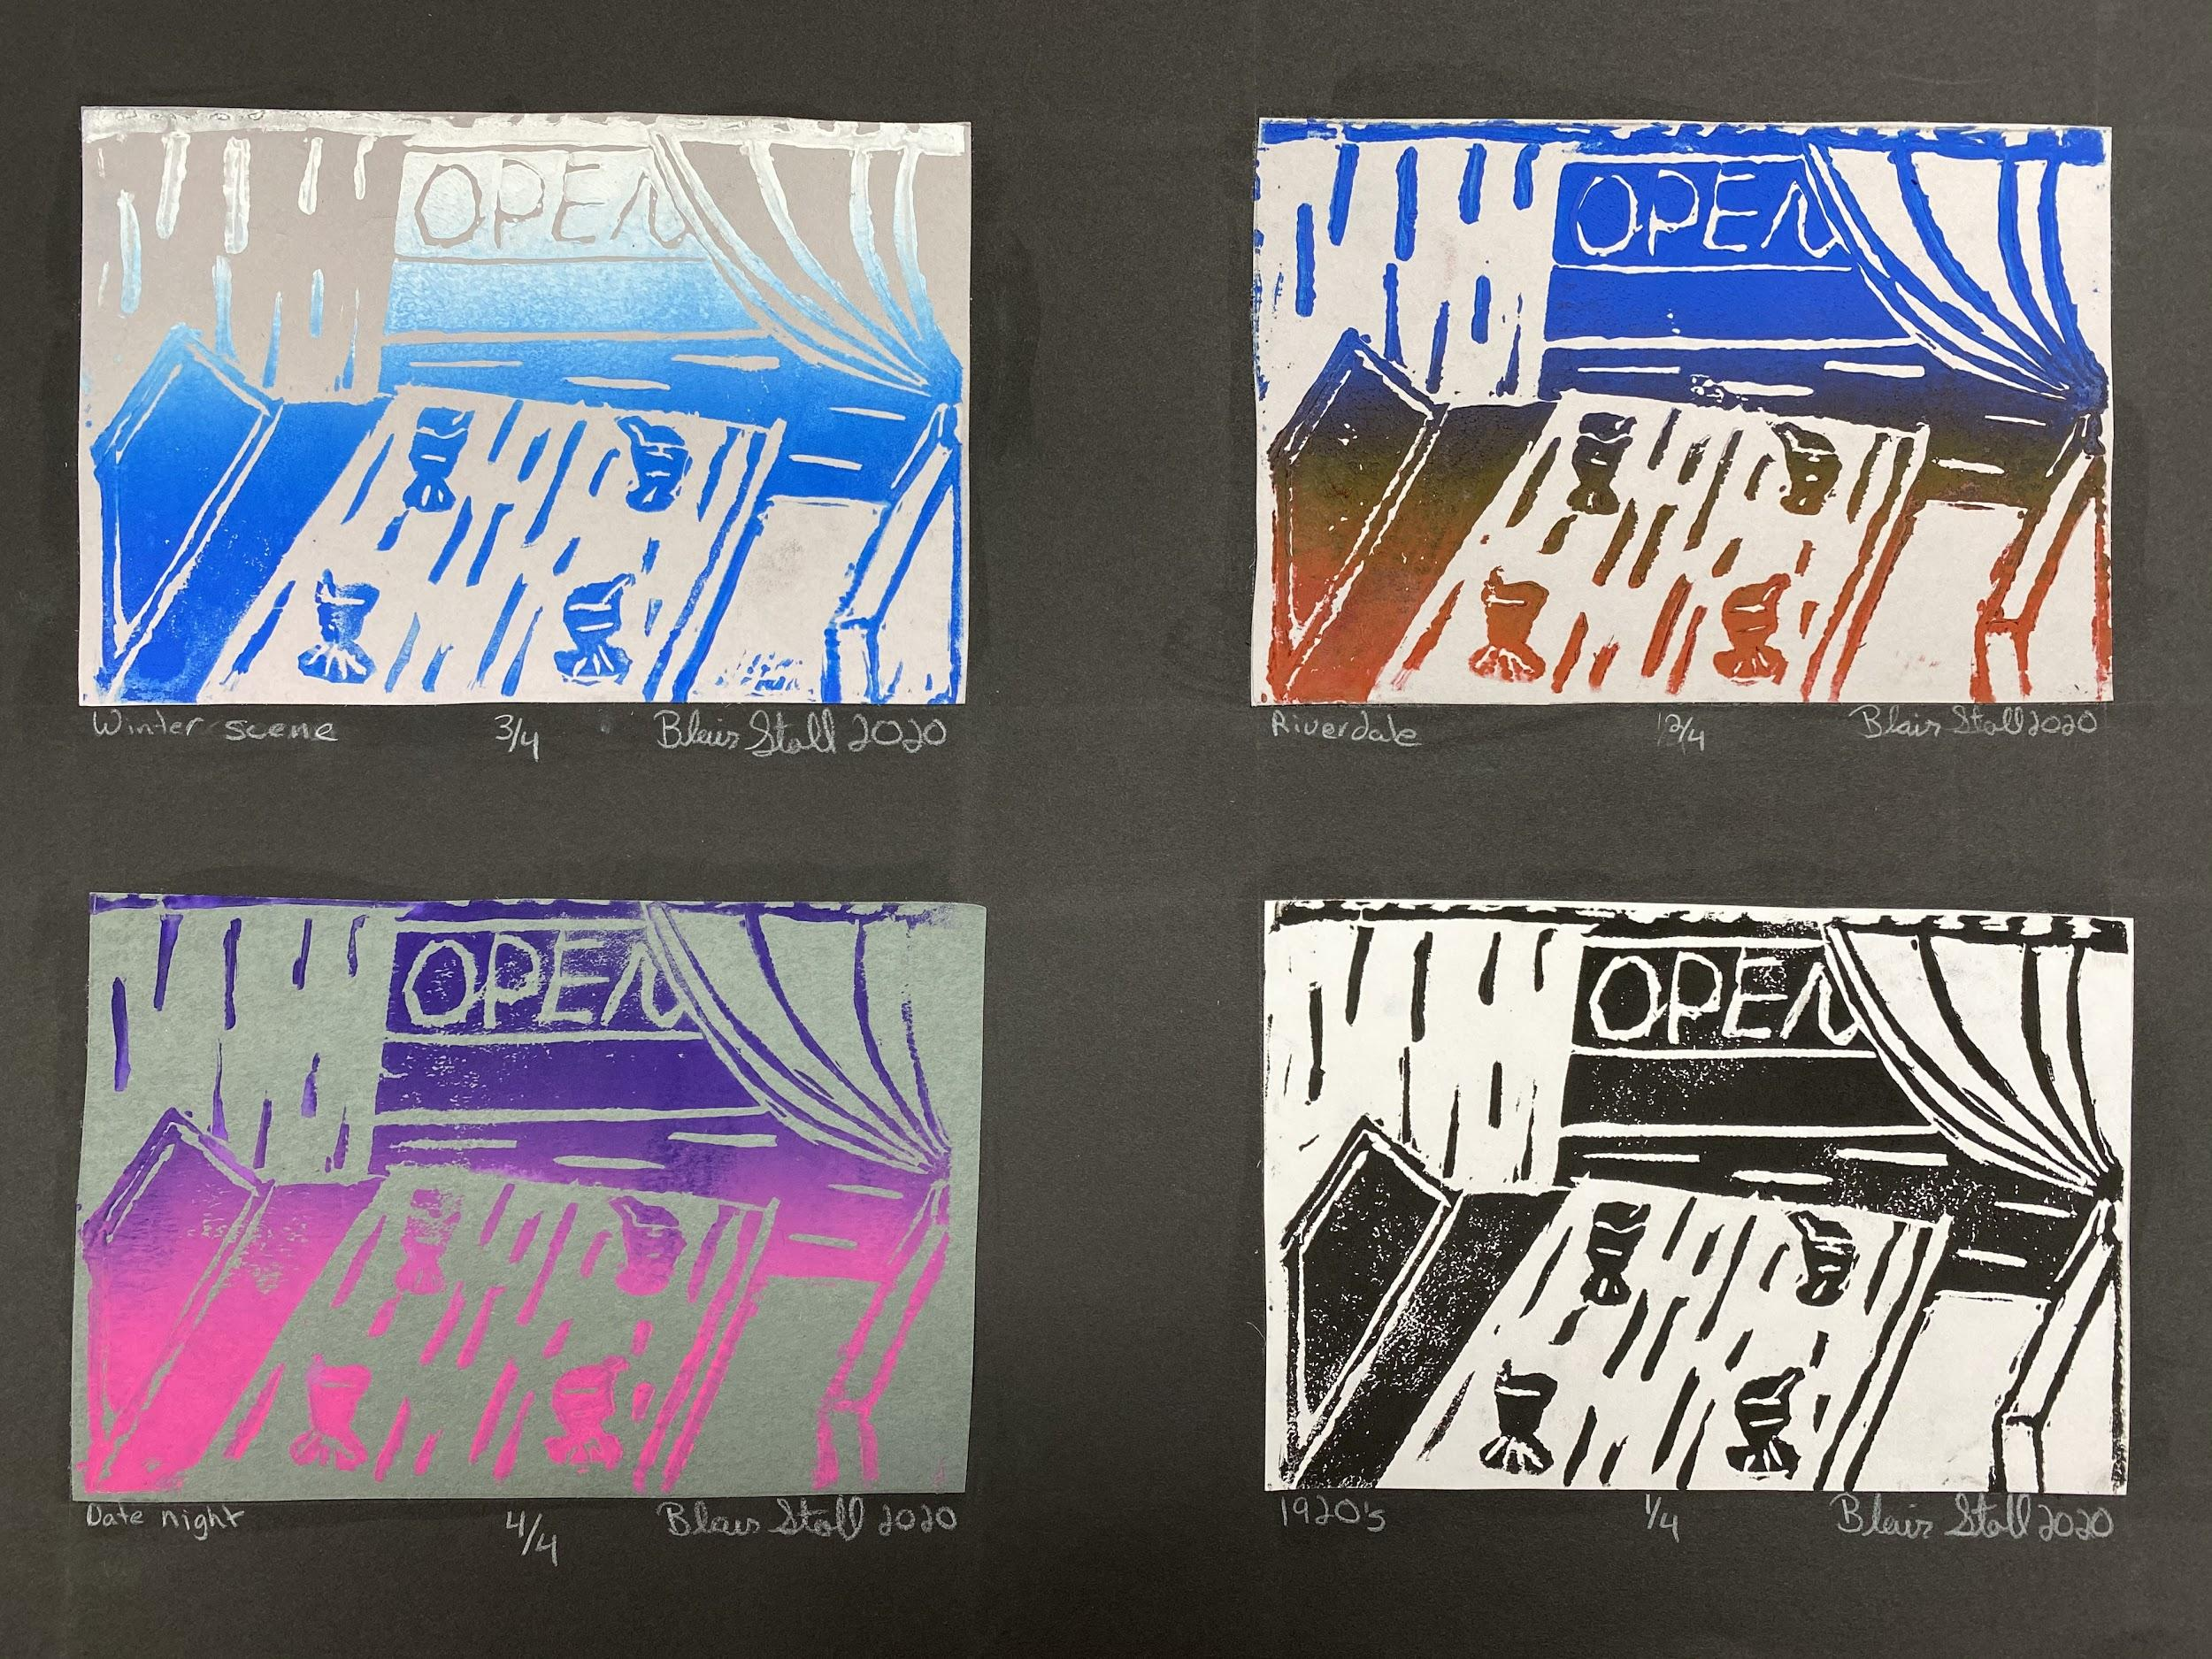 OPEN
Winter scene 3/4 Blair Stoll 2020
OPEN
Riverdale 2/4 Blair Stoll 2020
OPEN
Date night 4/4 Blair Stoll 2020
OPEN
1920's 1/4 Blair Stoll 2020